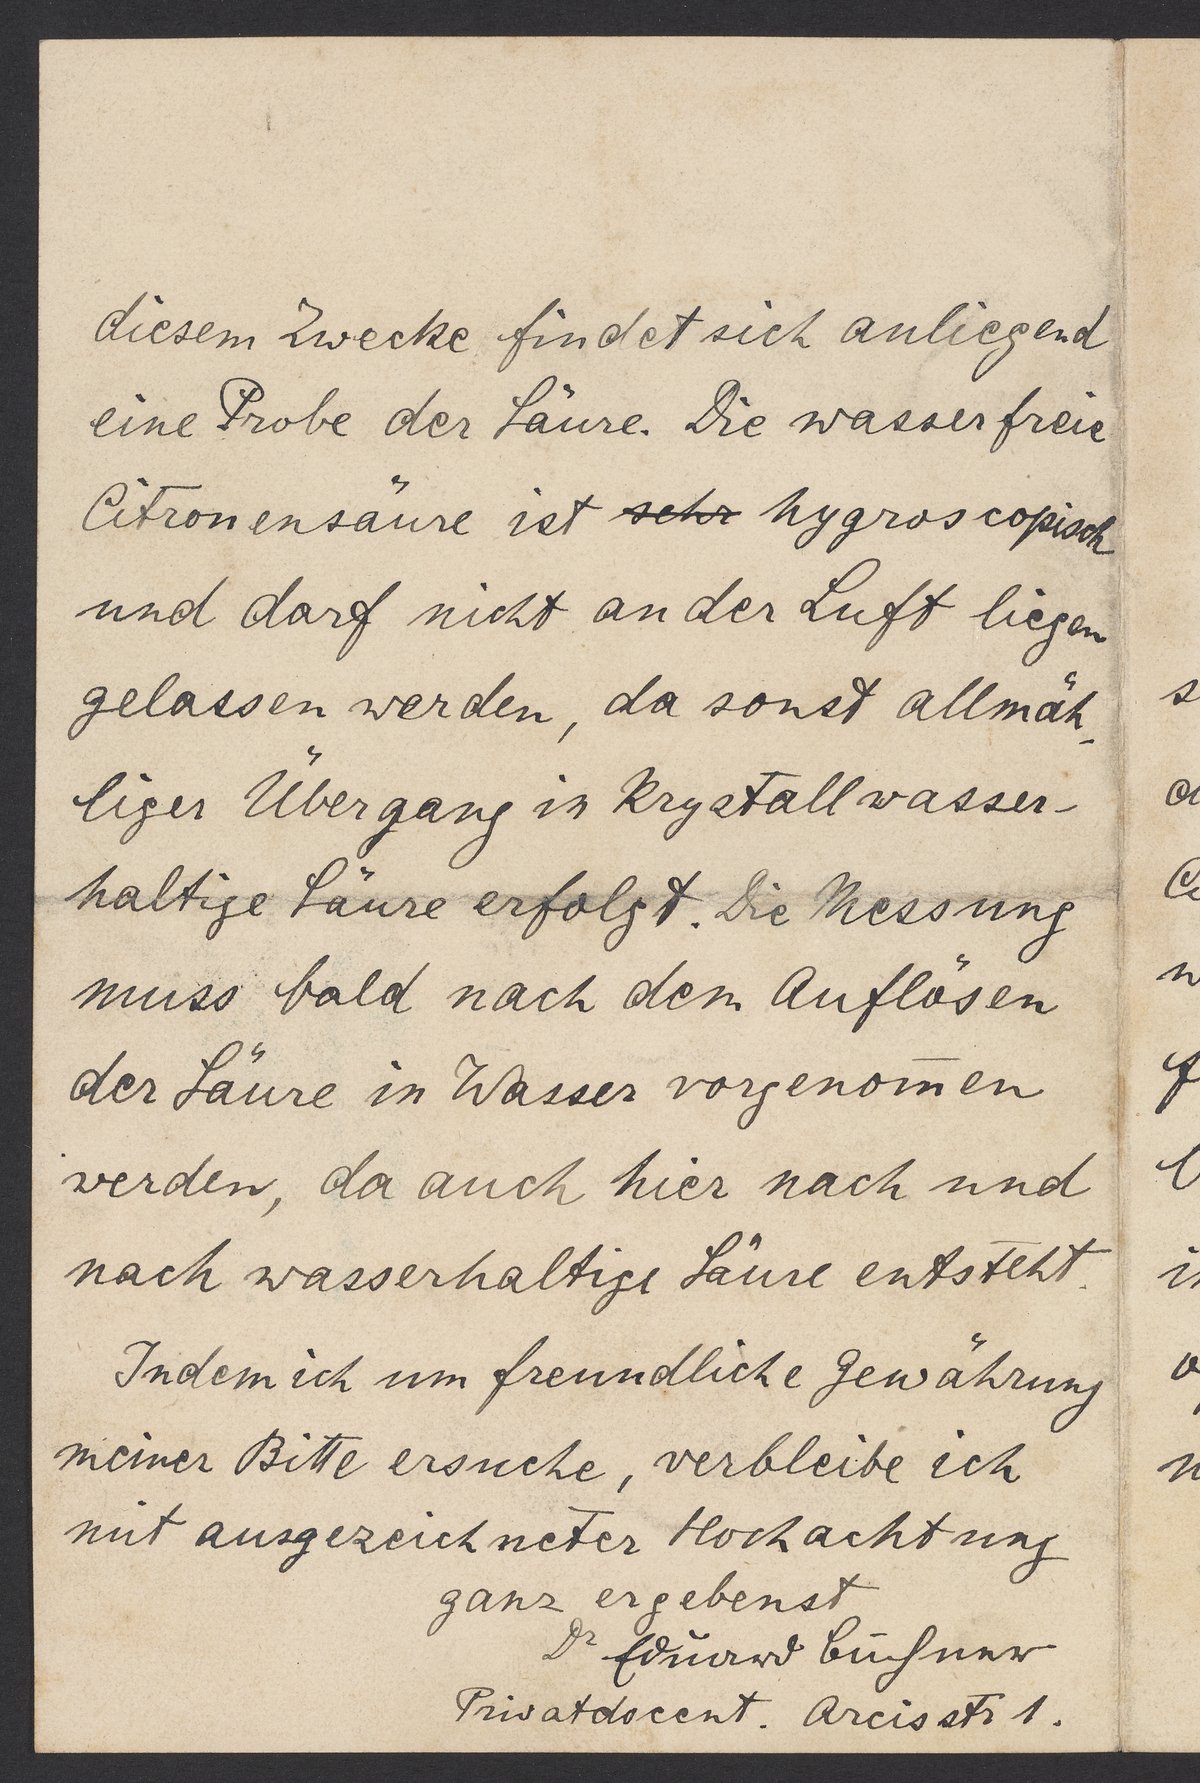 diesem Zwecke findet sich anliegend
eine Probe der Säure. Die wasserfreie
Citronensäure ist ~~sehr~~ hygroscopisch
und darf nicht an der Luft liegen
gelassen werden, da sonst allmäh-
liger Übergang in krystallwasser-
haltige Säure erfolgt. Die Messung
muss bald nach dem Auflösen
der Säure in Wasser vorgenom̅en
werden, da auch hier nach und
nach wasserhaltige Säure entsteht.
Indem ich um freundliche Gewährung
meiner Bitte ersuche, verbleibe ich
mit ausgezeichneter Hochachtung
ganz ergebenst
Dr Eduard Buchner
Privatdocent. Arcisstr 1.